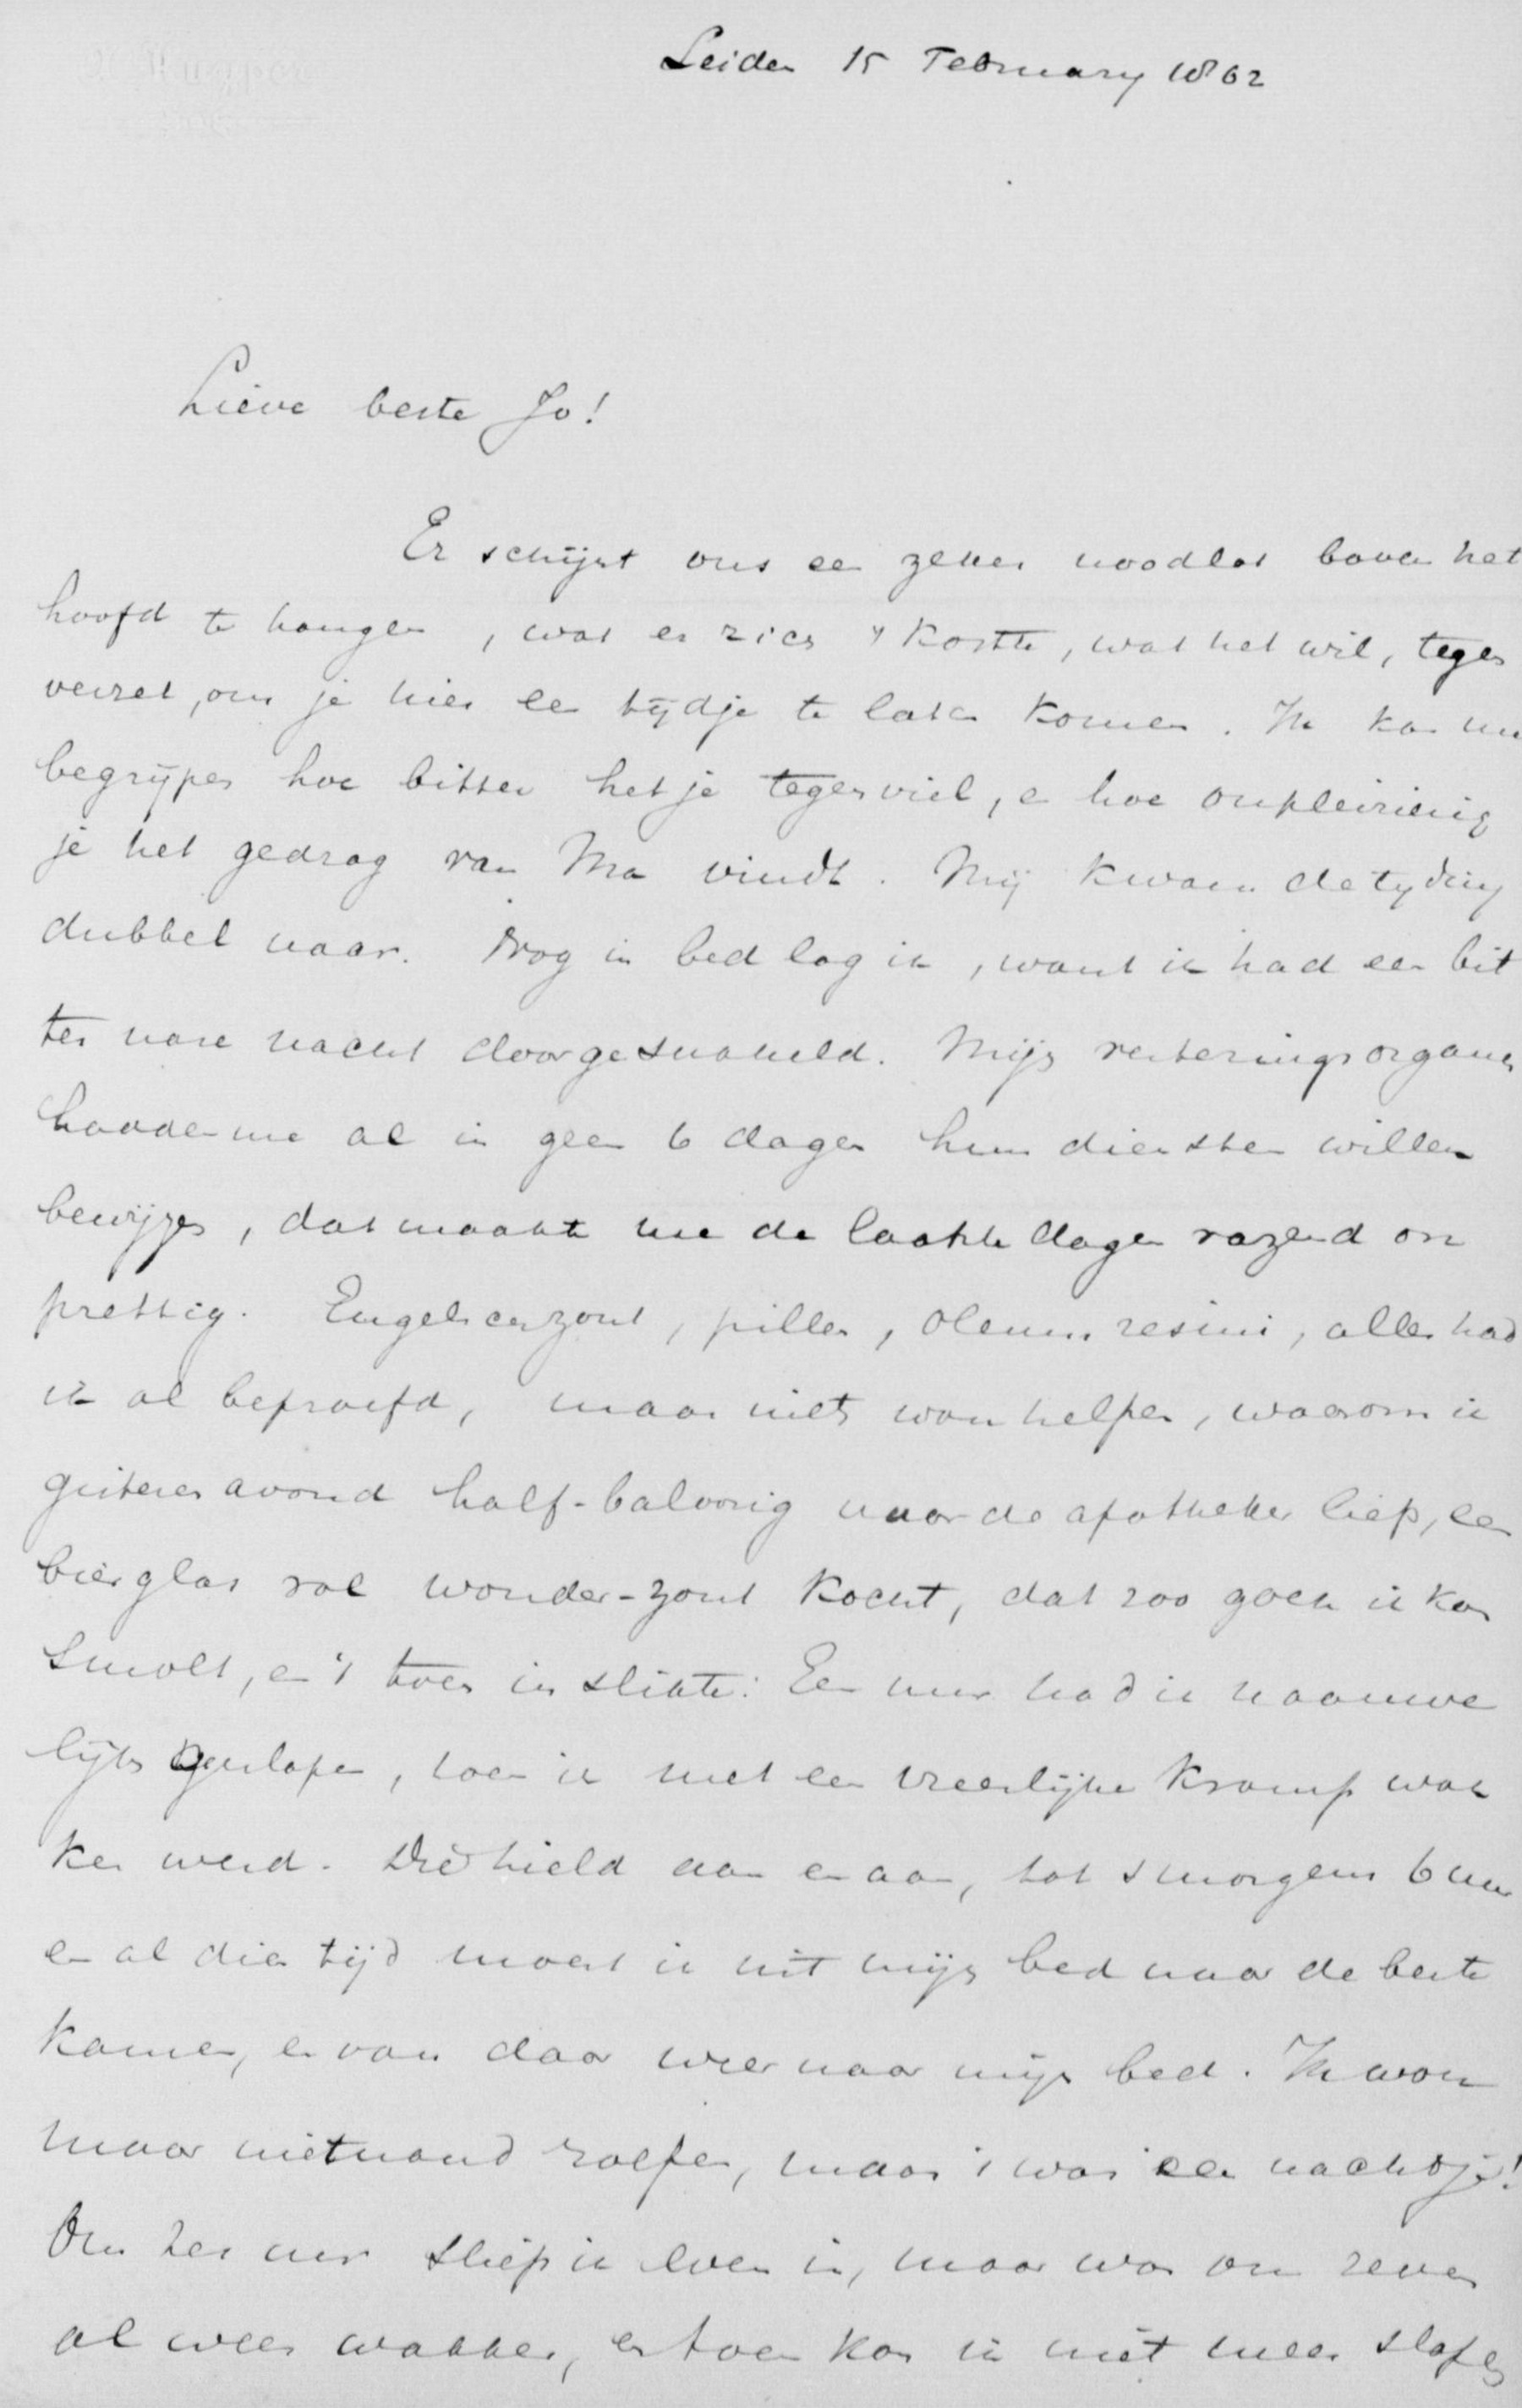 Leiden 15 February 1862
Lieve beste Jo!
Er schijnt ons een zeker noodlot boven het
hoofd te hangen, wat er zich 't koste, wat het wil, tegen
verzet, om je hier een tijdje te laten komen. Ik kan me
begrijpen hoe bitter het je tegenviel, en hoe onpleizierig
je het gedrag van Ma vindt. Mij kwam de tyding
dubbel naar. Nog in bed lag ik, want ik had een bit
ter nare nacht doorgesukkeld. Mijn verteringsorganen
hadden me al in geen 6 dagen hun diensten willen
bewijzen, dat maakte me de laatste dagen razend on
prettig. Engelsch zout, pillen, oleum resini, alles had
ik al beproefd, maar niets wou helpen, waarom ik
gisteren avond half-baloorig naar de apotheker liep, een
bierglas vol wonder-zout kocht, dat zoo goed ik kon
smolt, en 't toen in slikte: Een uur had ik naauwe
lijks geslapen, toen ik met een vreeslijke kramp wak
ker werd. Die hield aan en aan, tot smorgens 6 uur
en al dien tijd moest ik uit mijn bed naar de beste
kamer, en van daar weer naar mijn bed. Ik wou
maar niemand roepen, maar 't was een nachtje!
Om zes uur sliep ik even in, maar was om zeven
al weer wakker, en toen kon ik niet meer slapen